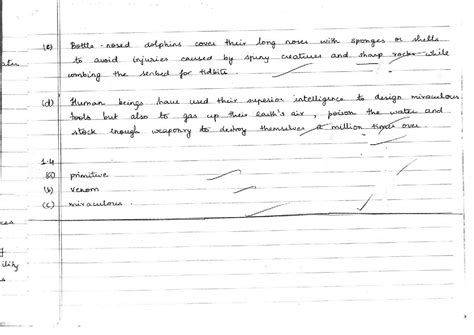 (c) Bottle-nosed dolphins cover their long noses with sponges or shells
to avoid injuries caused by spiny creatures and sharp rocks while
combing the seabed for tidbits
(d) Human beings have used their superior intelligence to design miraculous
tools but also to gas up their Earth's air, poison the water and
stock enough weaponry to destroy themselves a million times over.
1.4
(a) primitive
(b) venom
(c) miraculous.
ility